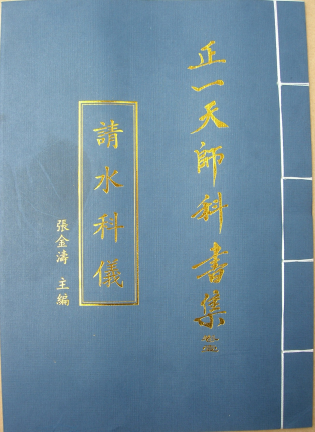 正一天師科書集
請水科儀
張金濤 主編